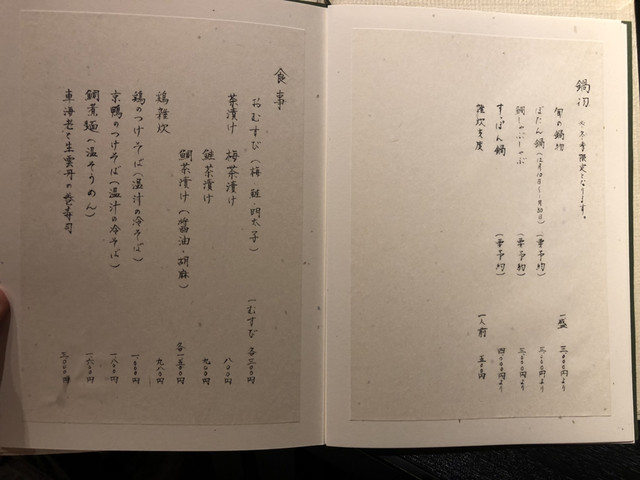 鍋物 ※冬季限定となります。
旬の鍋物 一盛 三、〇〇〇円より
ぼたん鍋 (要予約) 三、五〇〇円より
鯛しゃぶしゃぶ (要予約) 三、八〇〇円より
すっぽん鍋 (要予約) 四、五〇〇円より
雑炊支度 一人前 五〇〇円
食事
おむすび(梅・鮭・明太子) 一むすび 各三〇〇円
茶漬け 梅茶漬け 八〇〇円
鮭茶漬け 九〇〇円
鯛茶漬け(醤油・胡麻) 各一、五〇〇円
鶏雑炊 九八〇円
鶏のつけそば(温汁の冷そば) 一、五〇〇円
京鴨のつけそば(温汁の冷そば) 一、八〇〇円
鯛煮麺(温そうめん) 一、六〇〇円
車海老と生雲丹の巻寿司 三、〇〇〇円